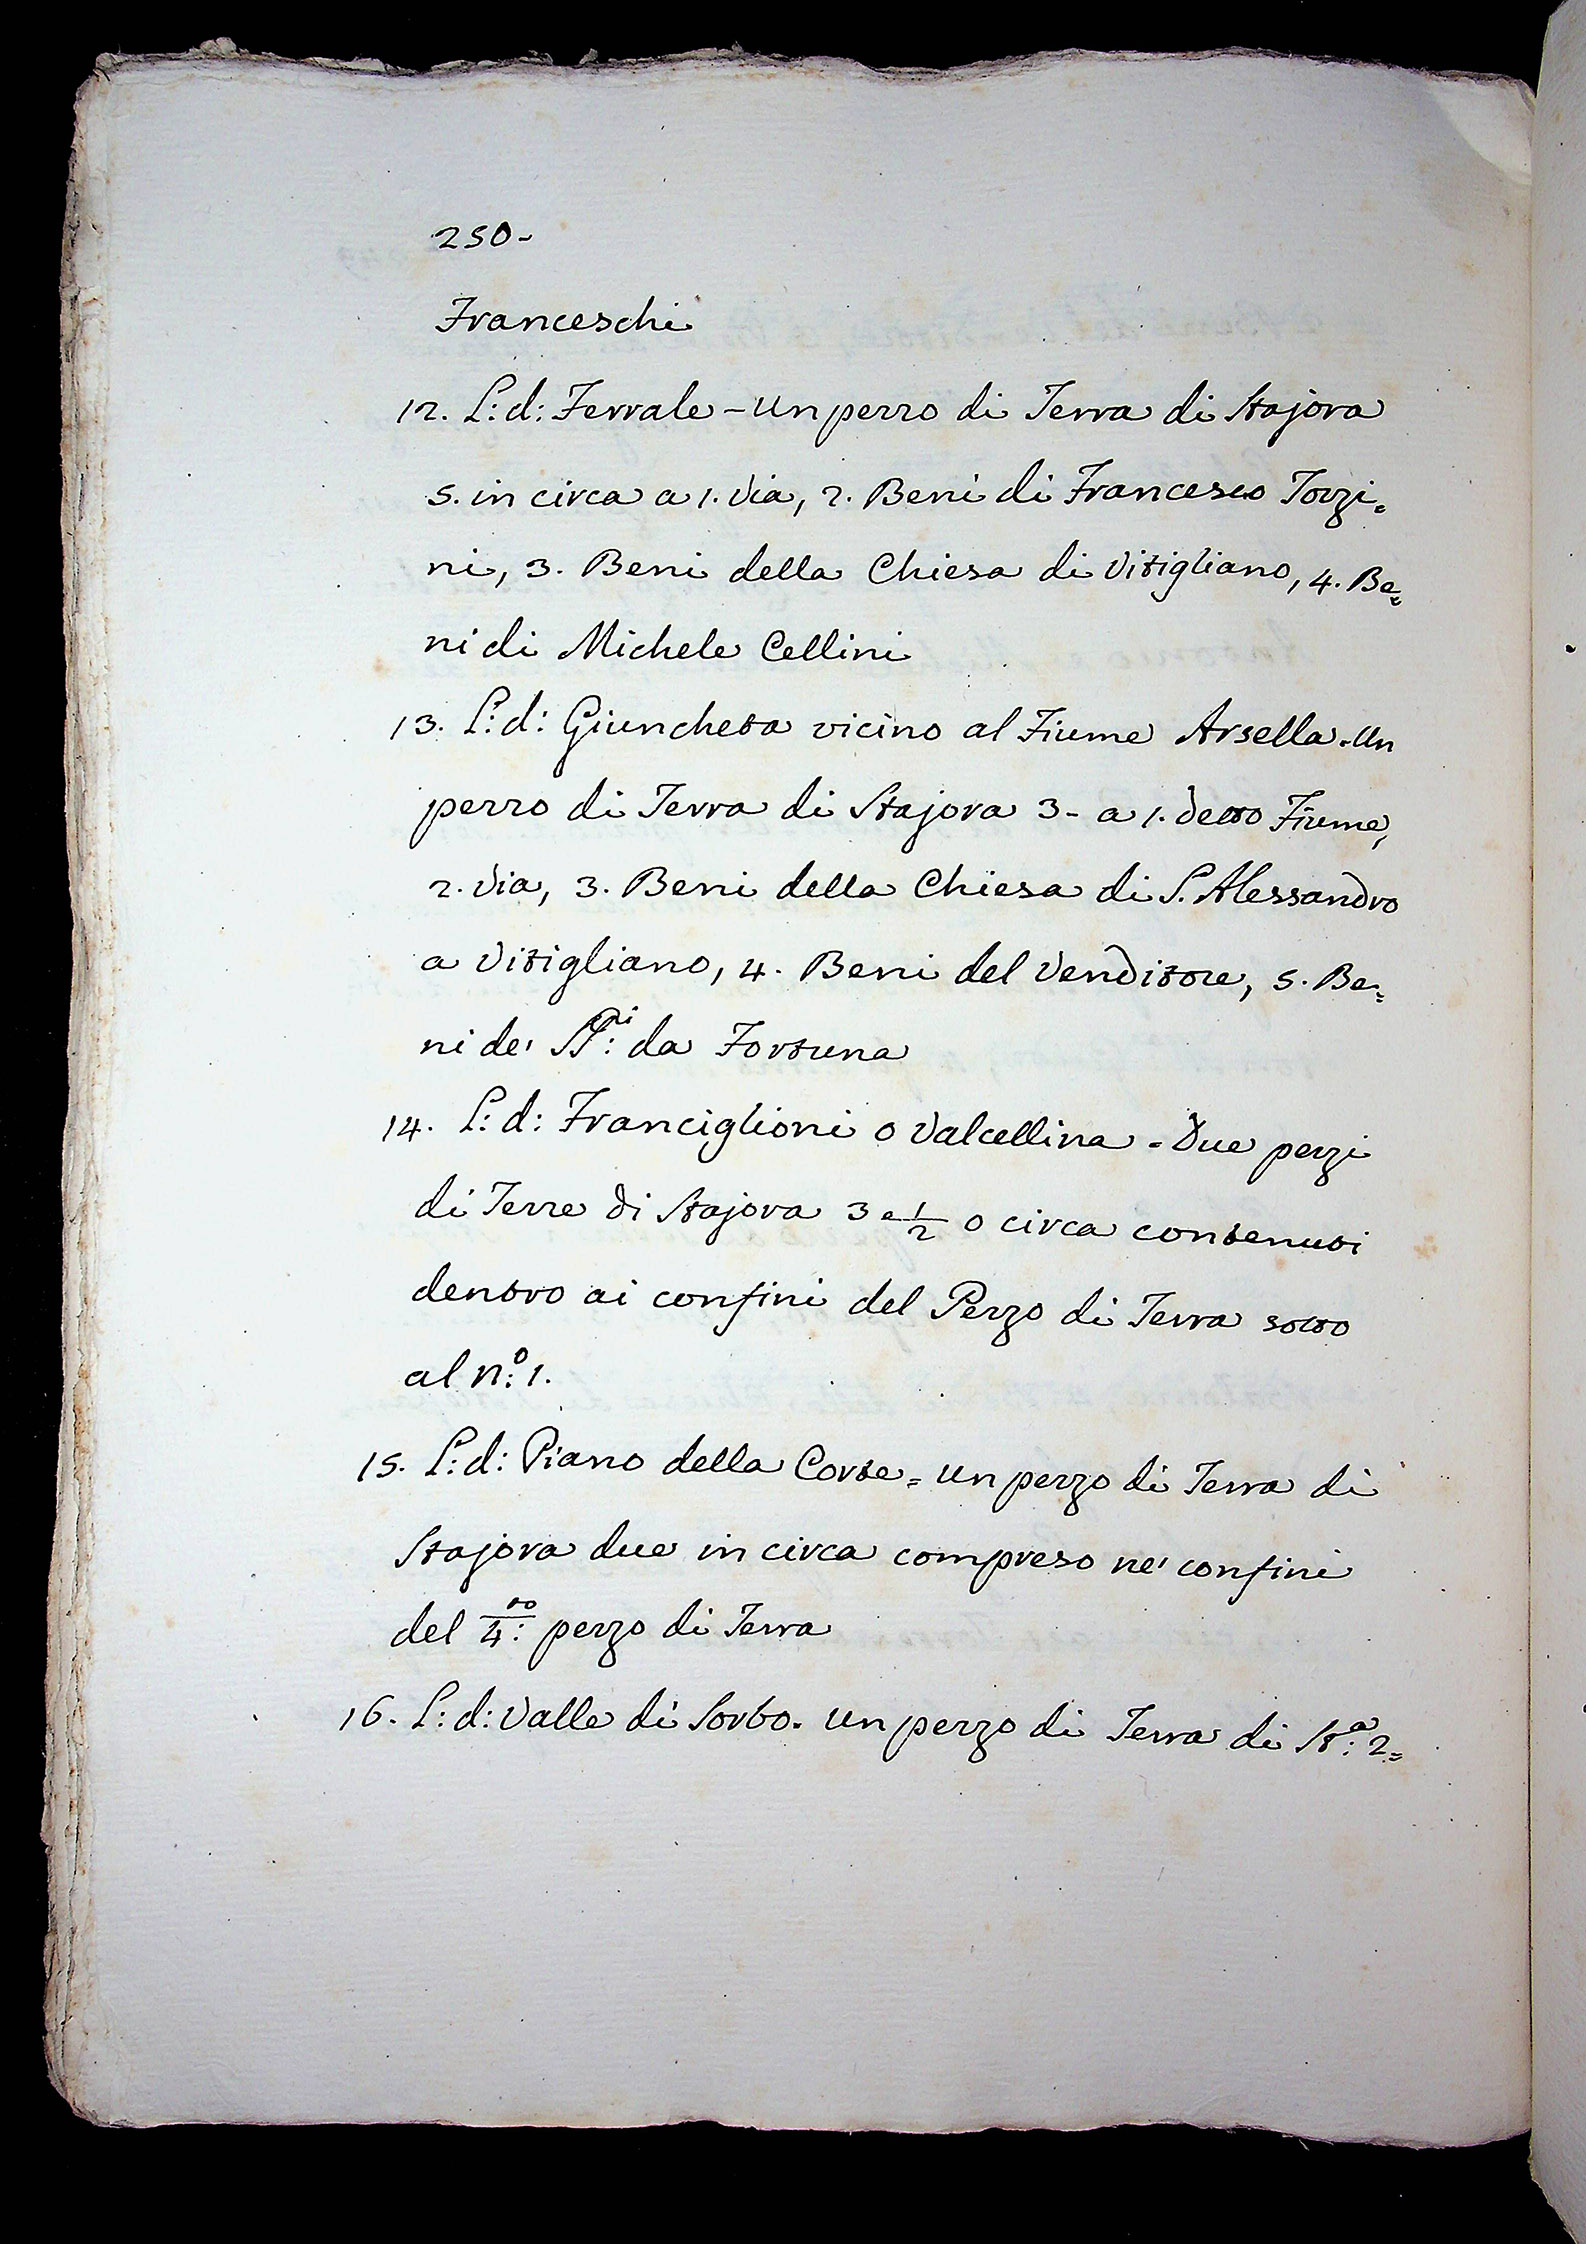 250-
Franceschi
12. L: d: Ferrale - un pezzo di Terra di Stajora
5. in circa a 1. Via, 2. Beni di Francesco Torzi=
ni, 3. Beni della Chiesa di Vitigliano, 4. Be=
ni di Michele Cellini
13. L: d: Giuncheta vicino al Fiume Arsella - Un
pezzo di Terra di Stajora 3 - a 1. detto Fiume,
2. Via, 3. Beni della Chiesa di S. Alessandro
a Vitigliano, 4. Beni del Venditore, 5. Be=
ni de' PP:ⁱ da Fortuna
14. L: d: Franciglioni o Valcellina - Due pezzi
di Terre di Stajora 3 e 1/2 o circa contenuti
dentro ai confini del Pezzo di Terra sotto
al n:º 1.
15. L: d: Piano della Corte = un pezzo di Terra di
Stajora due in circa compreso ne' confini
del 4:to pezzo di Terra
16. L: d: Valle di Sorbo. un pezzo di Terra di St:ª 2=